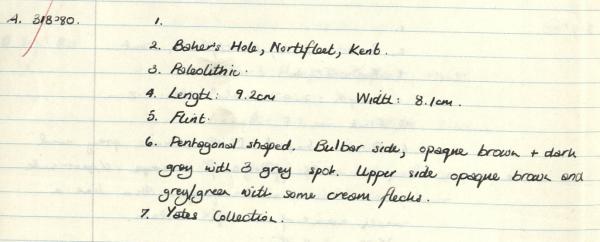 A. 318280. 1.
2. Baker's Hole, Northfleet, Kent.
3. Paleolithic.
4. Length: 9.2cm Width: 8.1cm.
5. Flint.
6. Pentagonal shaped. Bulbar side, opaque brown + dark
grey with 3 grey spots. Upper side opaque brown and
grey/green with some cream flecks.
7. Yates Collection.